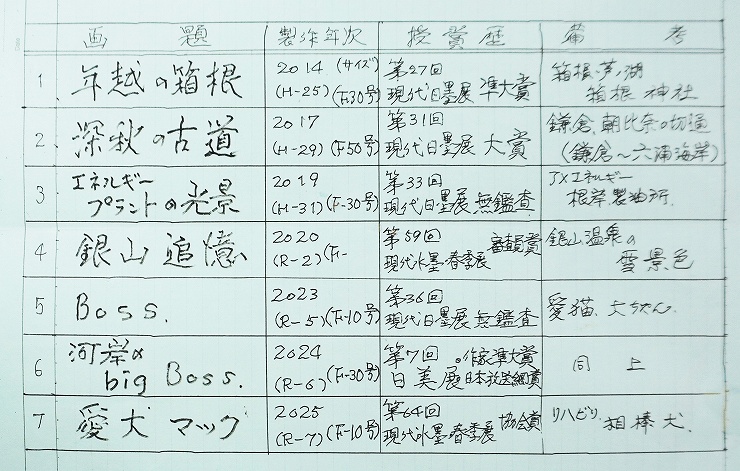 画題 製作年次 授賞歴 備考
1 年越の箱根 2014 (サイズ) 第27回 箱根・芦ノ湖
(H-25) (F30号) 現代日墨展 準大賞 箱根神社
2 深秋の古道 2017 第31回 鎌倉、朝比奈の切通
(H-29) (F50号) 現代日墨展 大賞 (鎌倉〜六浦海岸)
3 エネルギー 2019 第33回 JXエネルギー
プラントの光景 (H-31) (F-30号) 現代日墨展 無鑑査 根岸製油所.
4 銀山追憶 2020 第59回 審査員賞 銀山温泉の
(R-2) (F- 現代水墨・春季展 雪景色
5 Boss. 2023 第36回 愛猫、
(R-5) (F-10号) 現代日墨展 無鑑査
6 河岸の 2024 第7回 作家準大賞 同上
big Boss. (R-6) (F-30号) 日美展 日本放送網賞
7 愛犬マック 2025 第64回 協会賞 リハビリ、相棒犬.
(R-7) (F-10号) 現代水墨・春季展